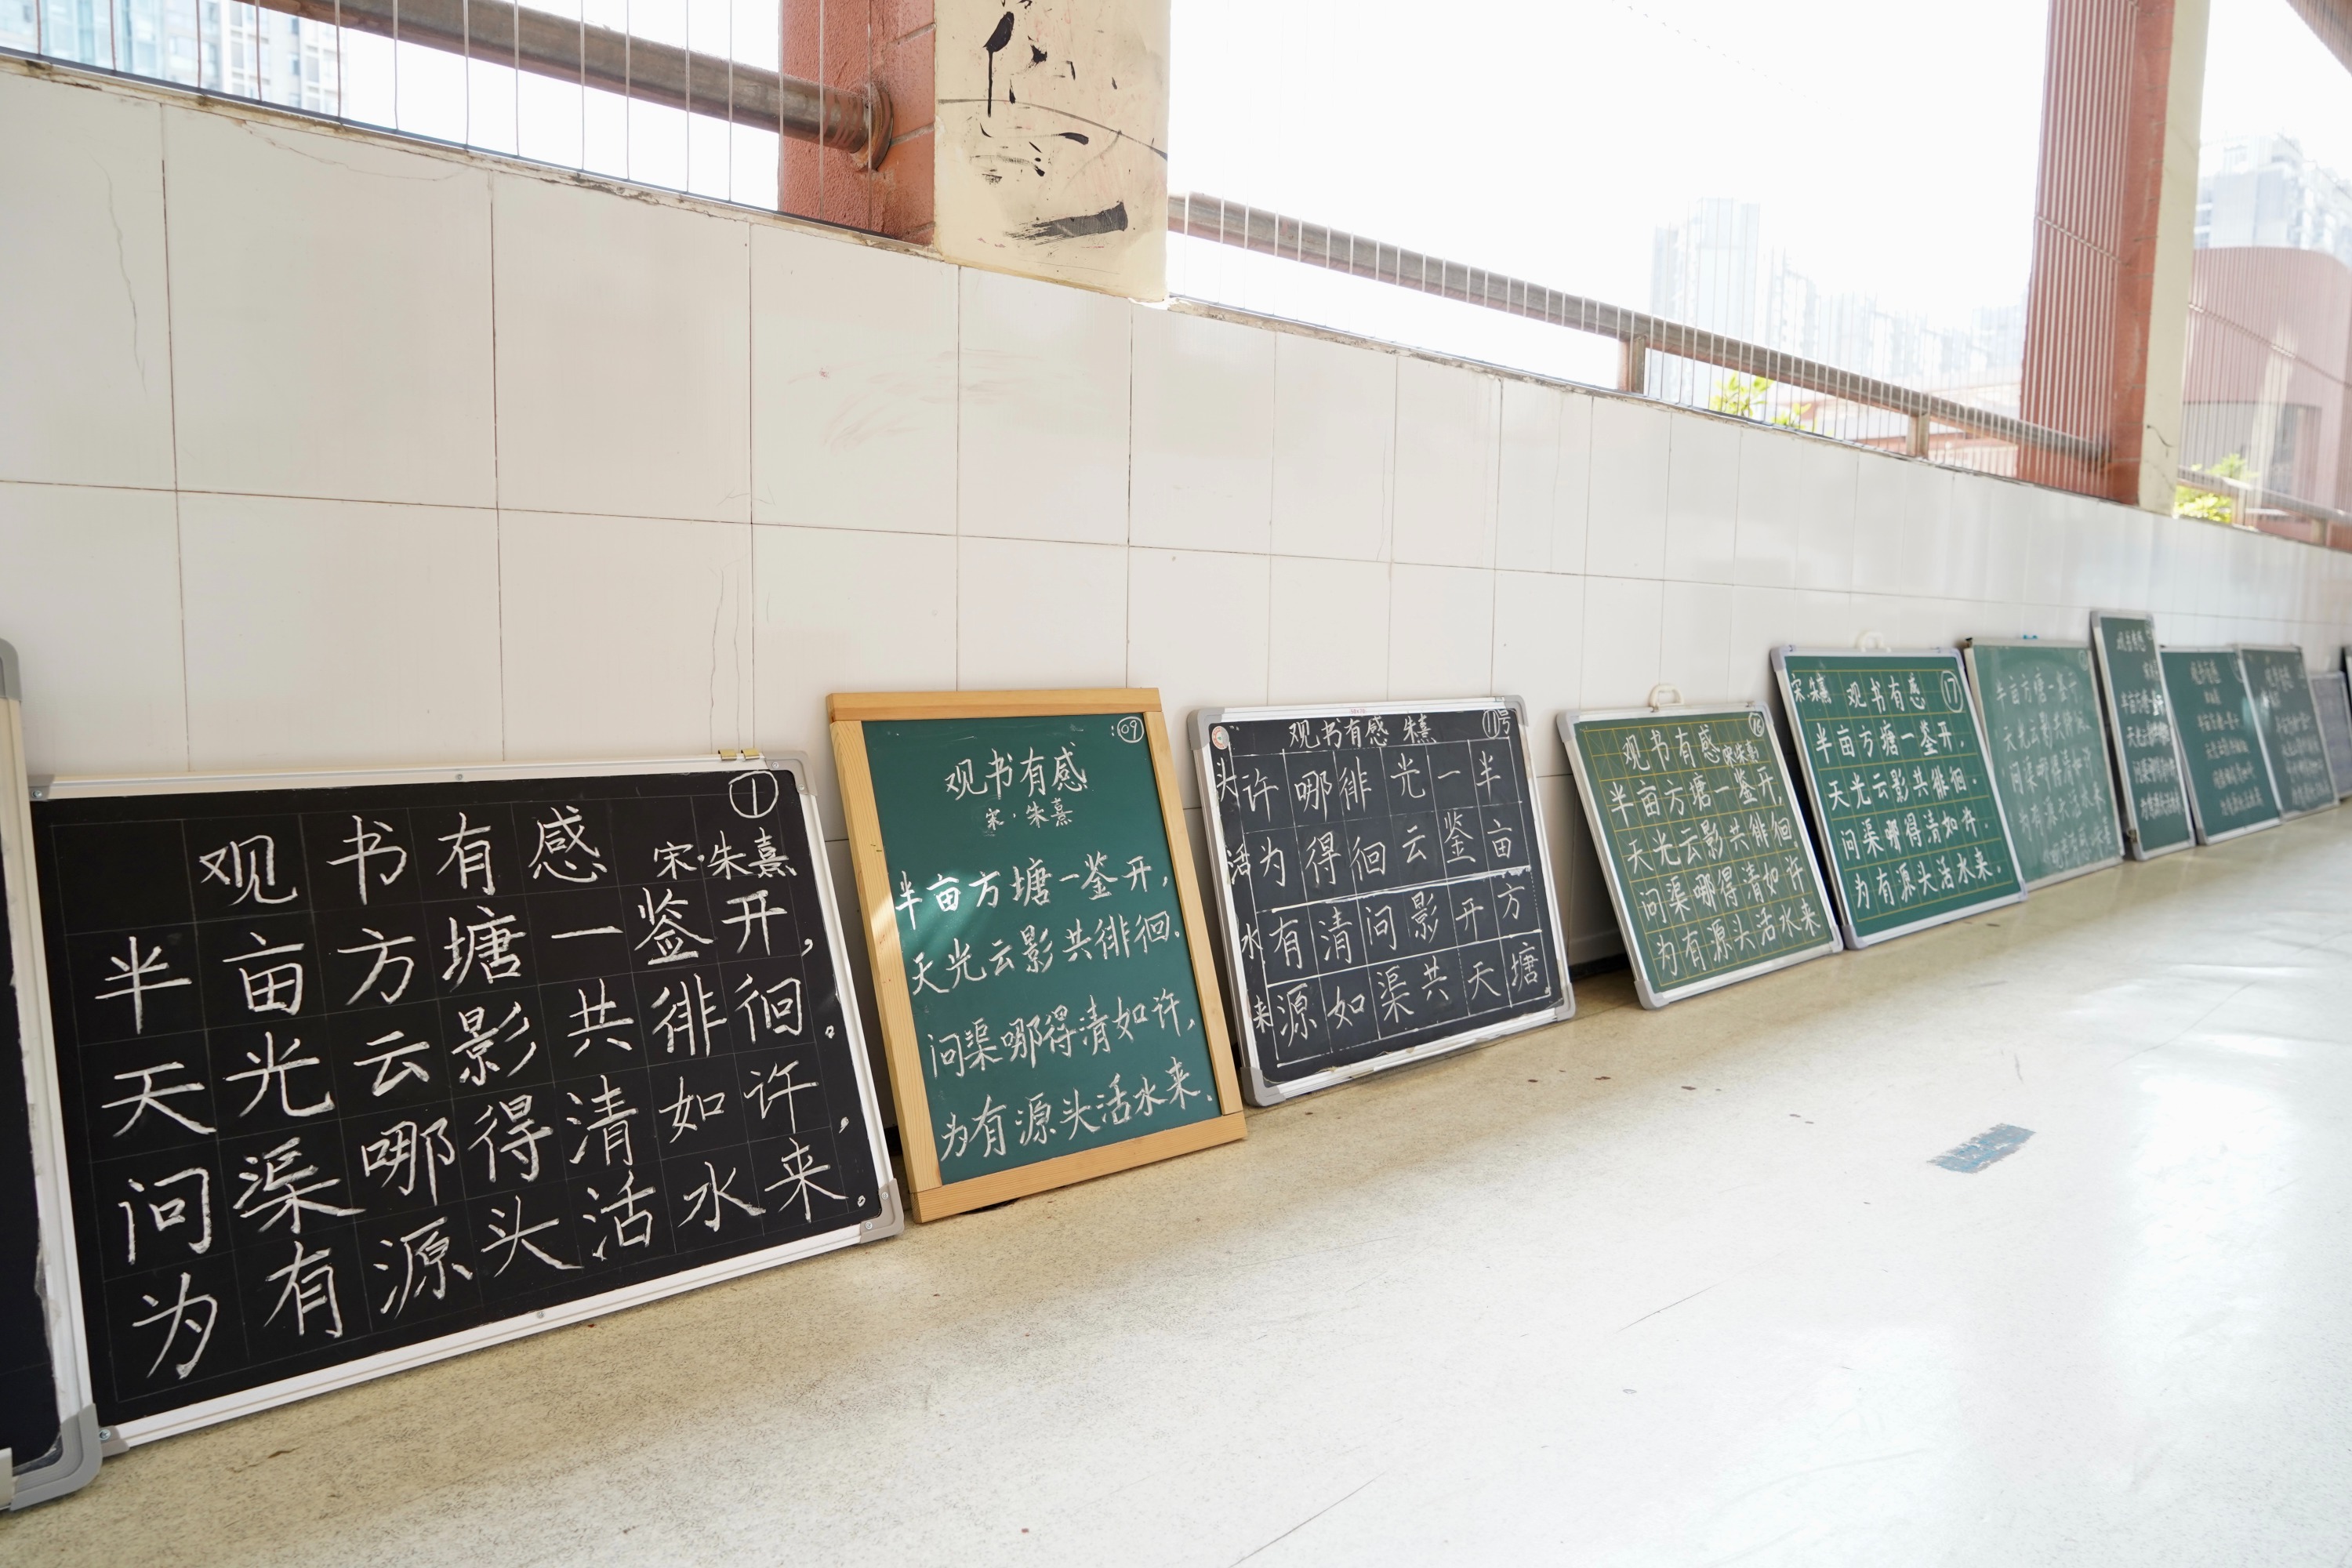 ①
观书有感 宋·朱熹
半亩方塘一鉴开,
天光云影共徘徊。
问渠哪得清如许,
为有源头活水来。
:09
观书有感
宋·朱熹
半亩方塘一鉴开,
天光云影共徘徊.
问渠哪得清如许,
为有源头活水来.
观书有感 朱熹 11号
半亩方塘
一鉴开天
光云影共
徘徊问渠
哪得清如
许为有源
头活水来。
16
观书有感 宋朱熹
半亩方塘一鉴开,
天光云影共徘徊
问渠哪得清如许
为有源头活水来
宋·朱熹 观书有感 17
半亩方塘一鉴开.
天光云影共徘徊.
问渠哪得清如许.
为有源头活水来.
半亩方塘一鉴开
天光云影共徘徊
问渠哪得清如许
为有源头活水来
观书有感